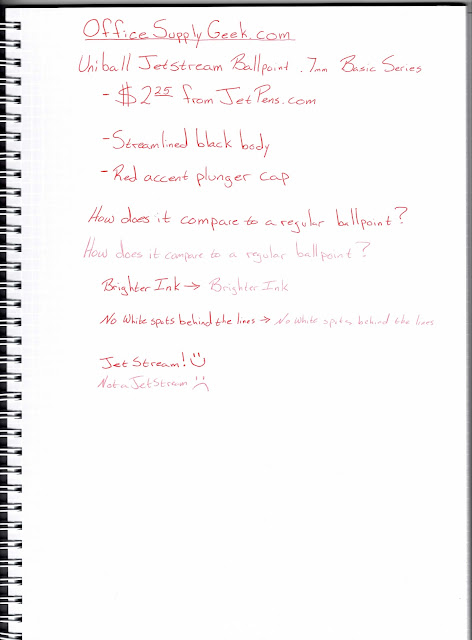 OfficeSupplyGeek.com
Uniball Jetstream Ballpoint .7mm Basic Series
- $2.25 from JetPens.com
- Streamlined black body
- Red accent plunger cap
How does it compare to a regular ballpoint?
How does it compare to a regular ballpoint?
Brighter Ink → Brighter Ink
No White spots behind the lines → No White spots behind the lines
JetStream! :)
Not a JetStream :(